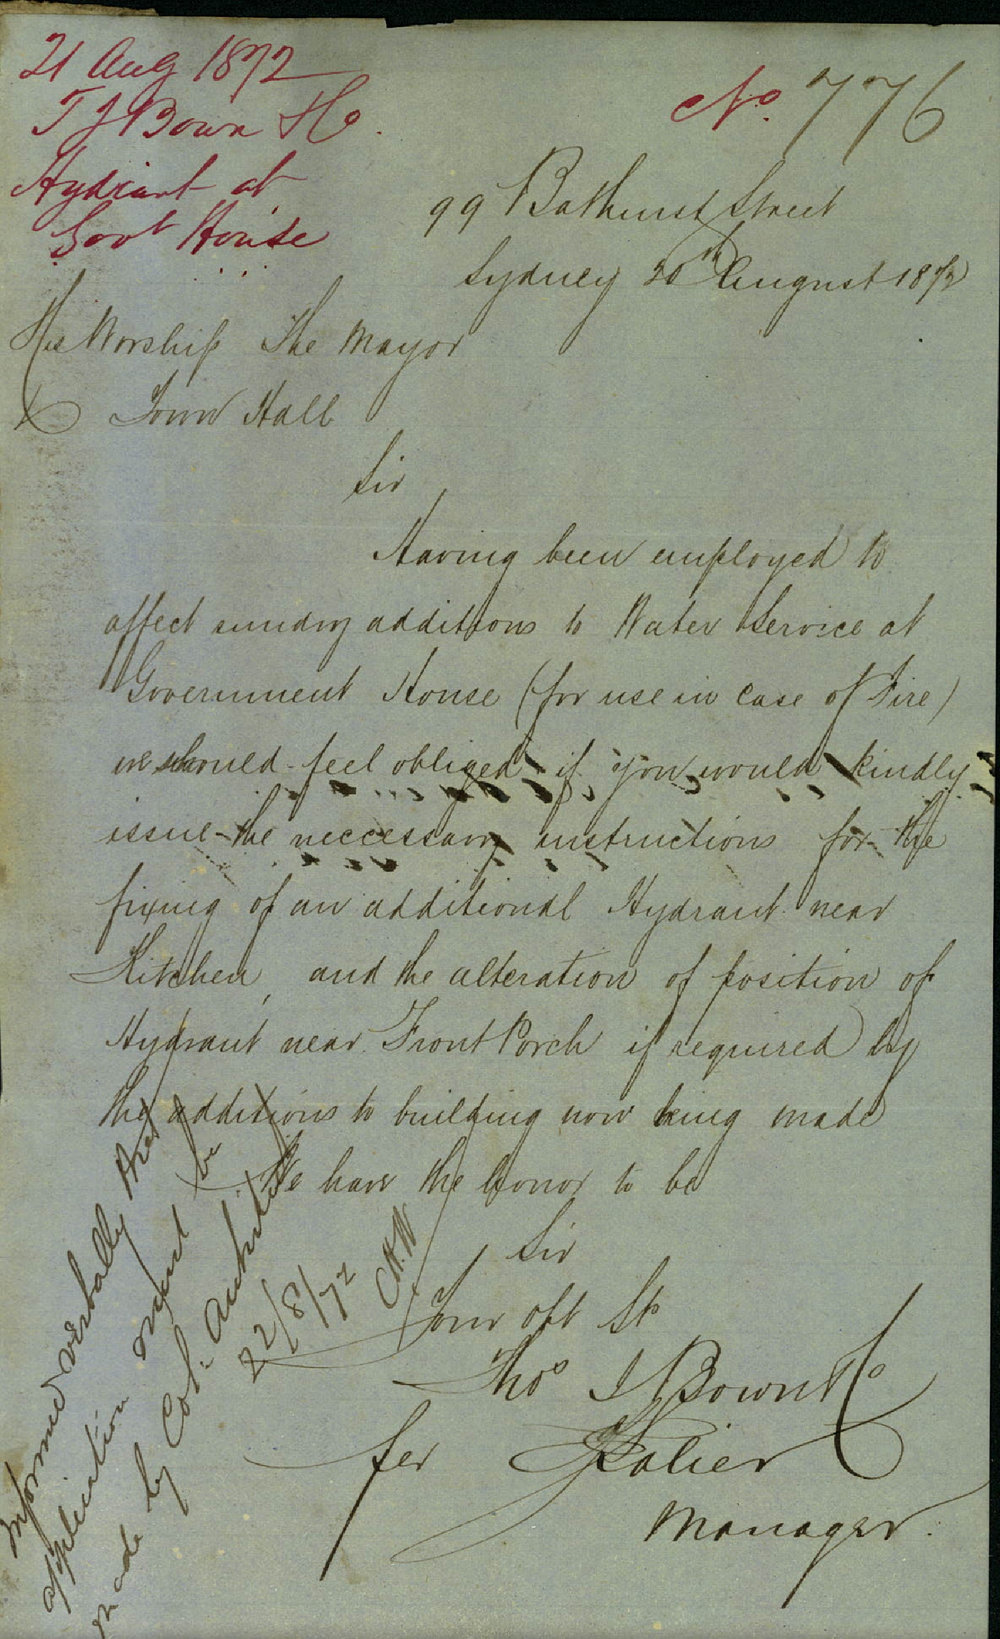 21 Aug 1872
T J Bown & Co.
Hydrant at
Govt House
No. 776
99 Bathurst Street
Sydney 20th August 1872
His Worship The Mayor
Town Hall
Sir
Having been employed to
affect sundry additions to Water Service at
Government House (for use in case of Fire)
we should feel obliged if you would kindly
issue the neccessary instructions for the
fixing of an additional Hydrant near
Kitchen, and the alteration of position of
Hydrant near Front Porch if required by
the additions to building now being made
We have the honor to be
Sir
Your obt St
Thos J Bown & Co
per
Manager.
Informed verbally that
application must be
made by Col: Architect
22/8/72